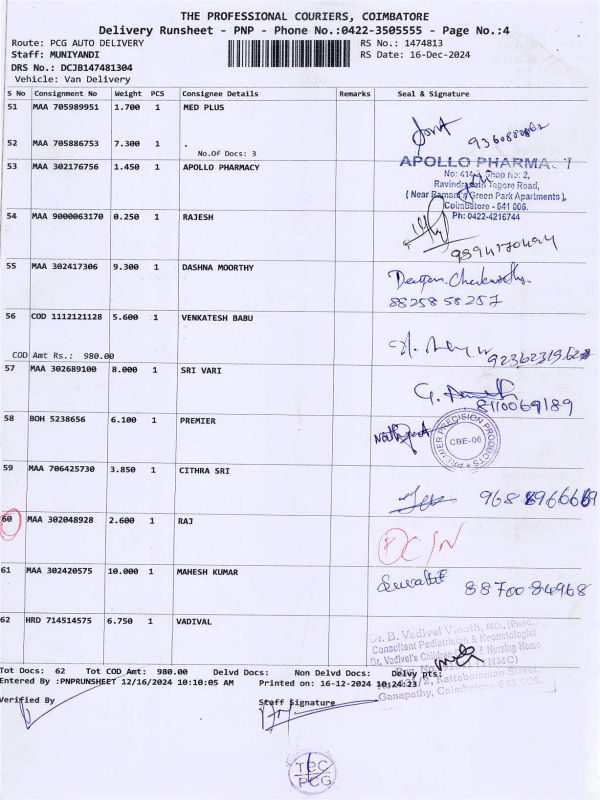 THE PROFESSIONAL COURIERS, COIMBATORE
Delivery Runsheet - PNP - Phone No.:0422-3505555 - Page No.:4
Route: PCG AUTO DELIVERY RS No.: 1474813
Staff: MUNIYANDI RS Date: 16-Dec-2024
DRS No.: DCJB147481304
Vehicle: Van Delivery
S No Consignment No Weight PCS Consignee Details Remarks Seal & Signature
51 MAA 705989951 1.700 1 MED PLUS
52 MAA 705886753 7.300 1 .
No.Of Docs: 3
53 MAA 302176756 1.450 1 APOLLO PHARMACY
APOLLO PHARMA
Shop No: 2,
Tagore Road,
( Near Raman's Green Park Apartments ),
Coimbatore - 641 006.
Ph: 0422-4216744
54 MAA 9000063170 0.250 1 RAJESH
55 MAA 302417306 9.300 1 DASHNA MOORTHY
88258 58257
56 COD 1112121128 5.600 1 VENKATESH BABU
COD Amt Rs.: 980.00
57 MAA 302689100 8.000 1 SRI VARI
8110069189
58 BOH 5238656 6.100 1 PREMIER
PREMIER PRECISION PRODUCTS
CBE-06
59 MAA 706425730 3.850 1 CITHRA SRI
60 MAA 302048928 2.600 1 RAJ
61 MAA 302420575 10.000 1 MAHESH KUMAR
88700 84968
62 HRD 714514575 6.750 1 VADIVAL
Dr. B. Vadivel Vinoth, MD., (Paed)
Consultant Pediatrician & Neonatologist
Dr. Vadivel's Children & Nursing Home
Kattabomman Street,
Ganapathy, Coimbatore-641 006.
Tot Docs: 62 Tot COD Amt: 980.00 Delvd Docs: Non Delvd Docs: Delvy pts:
Entered By :PNPRUNSHEET 12/16/2024 10:10:05 AM Printed on: 16-12-2024 10:24:23
Verified By Staff Signature
TPC
PCG